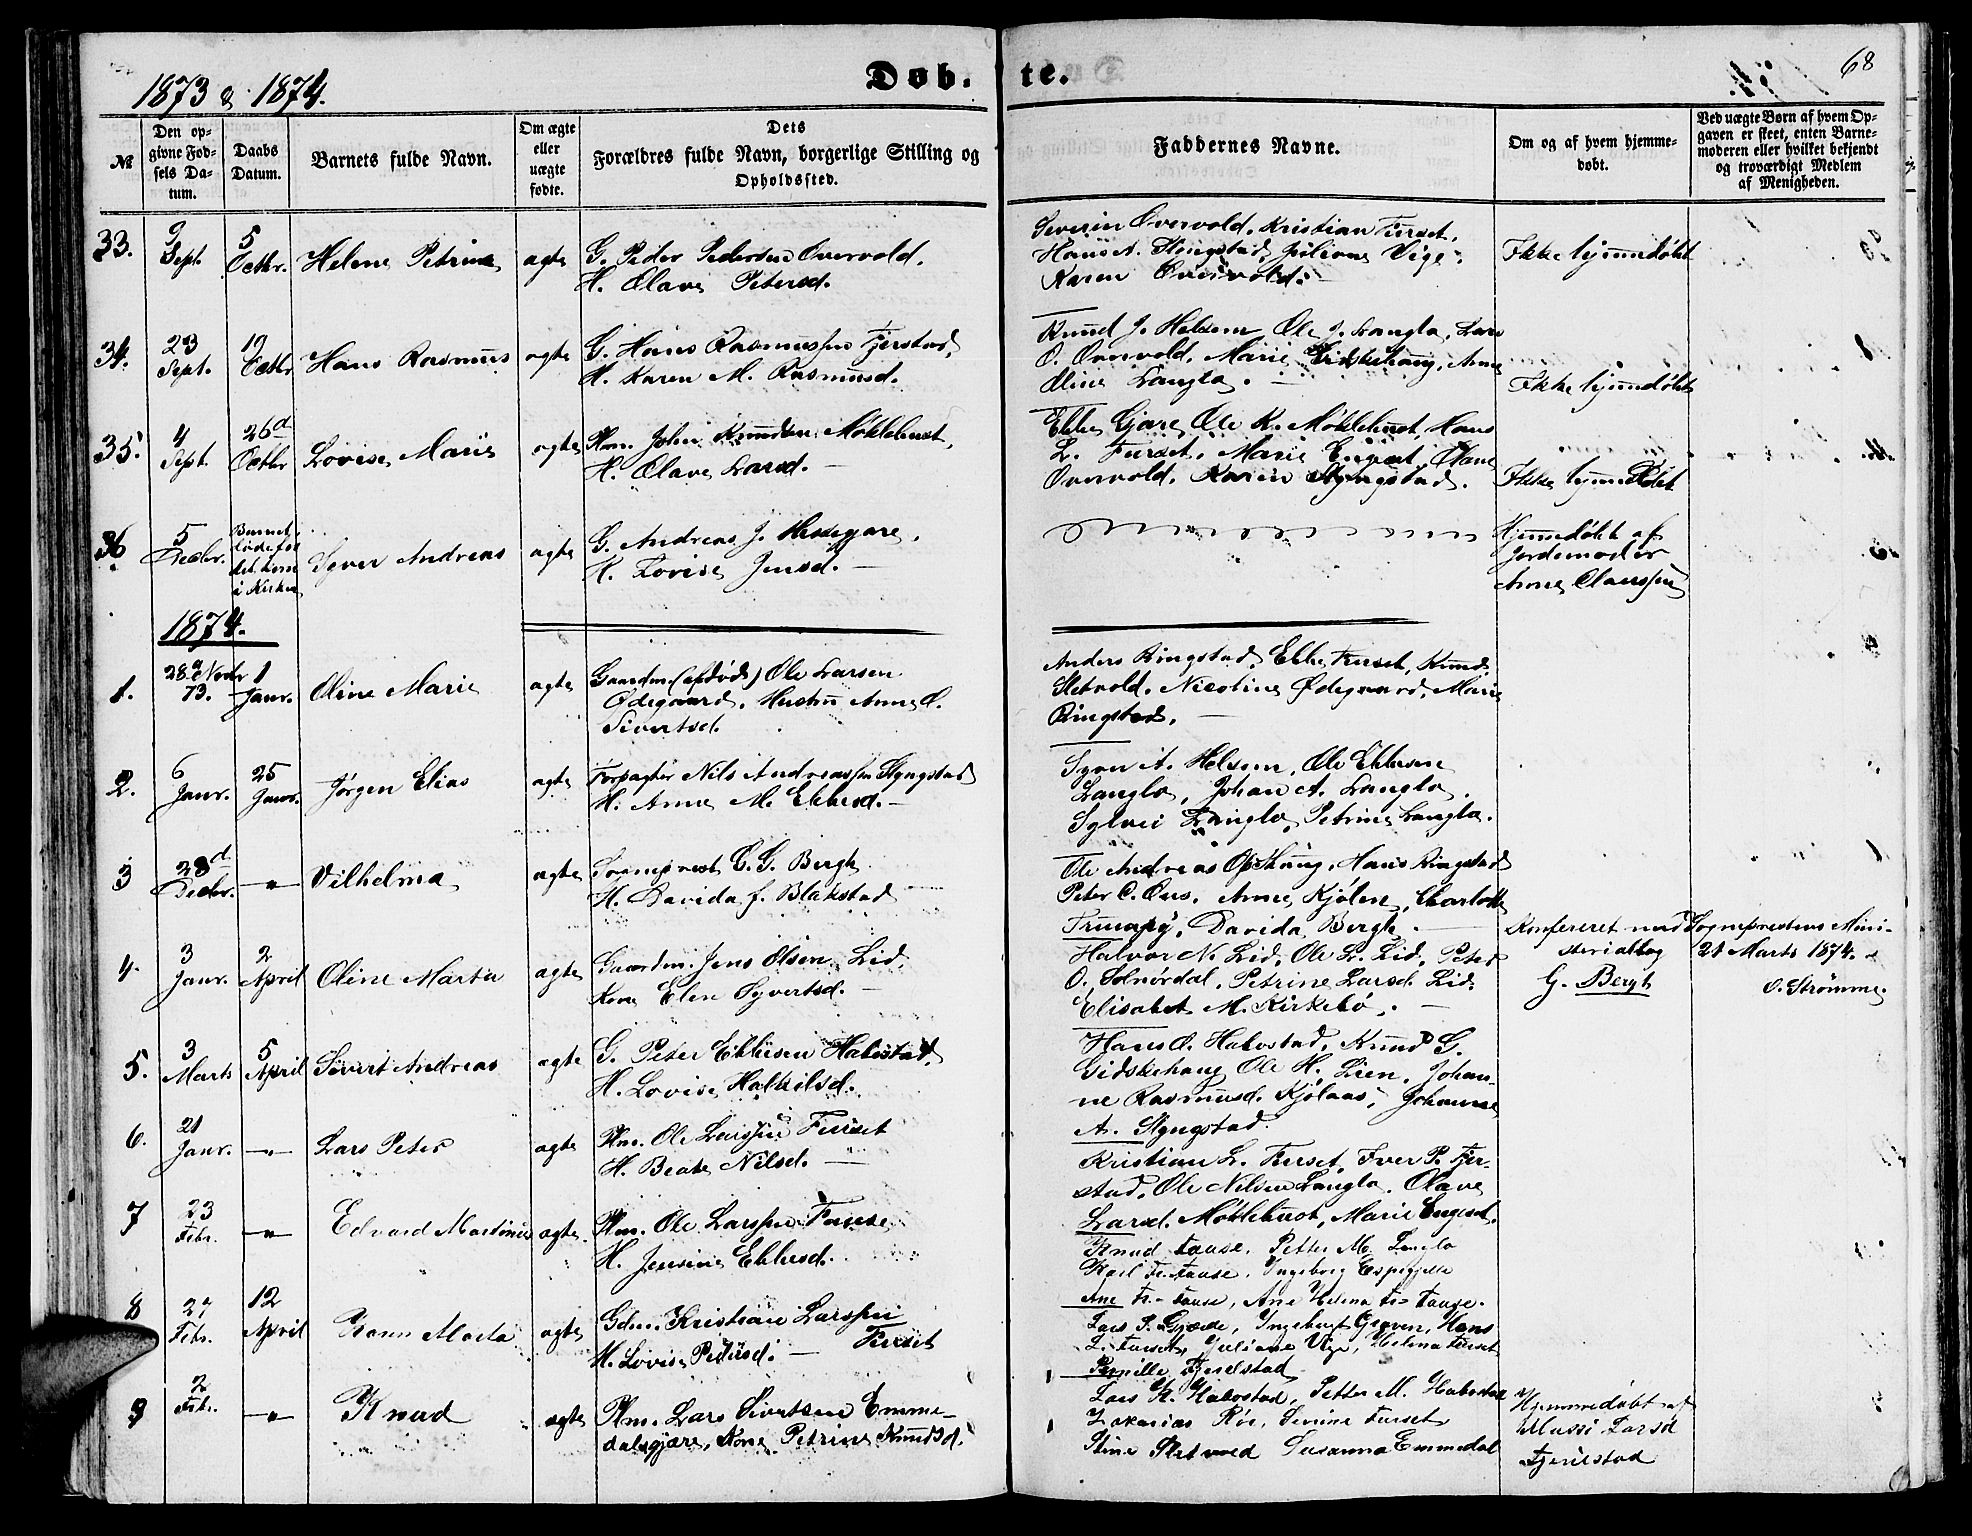 68
1873 & 1874.
Døb-
te.
№
Den op-
givne Fød-
sels Da-
tum.
Daabs
Datum.
Barnets fulde Navn.
Om ægte
eller
uægte
fødte.
Dets
Forældres fulde Navn, borgerlige Stilling og
Opholdssted.
Faddernes Navne.
Om og af hvem hjemme-
døbt.
Ved uægte Børn af hvem Op-
gaven er skeet, enten Barne-
moderen eller hvilket bekjendt
og troværdigt Medlem
af Menigheden.
33.
9
Sept.
5
Octbr.
Helene Petrine
ægte
G. Peder Pedersen Overvold.
H. Olave Petersd.
Severin Overvold, Kristian Furset,
Hans A. Styngstad, Juliane Vige,
Karen Overvold.
Ikke hjemmedøbt
34.
23
Sept.
19
Octbr
Hans Rasmus
ægte
G. Hans Rasmussen Fjerstad,
H. Karen M. Rasmusd.
Knud J. Helsem, Ole J. Langlo, Lars
O. Overvold, Marie Gidskehaug, Anne
Oline Langlo.
Ikke hjemmedøbt
35.
4
Sept.
26d
Octbr
Lovise Marie
ægte
Pm. John Knudsen Møklebust,
H. Olave Larsd.
Ebbe Gjære, Ole K. Møklebust, Hans
L. Furset, Marie Engeset, Olave
Overvold, Karen Styngstad.
Ikke hjemmedøbt
36
5
Decbr.
Barnet
døde før
det kom
i Kirken
Syver Andreas
ægte
G. Andreas J. Hessegjære,
H. Lovise Jensd.
Hjemmedøbt af
Jordemoder
Anne Claussen
1874.
1.
28d Novbr
73.
1
Janr.
Oline Marie
ægte
Gaardm. (afdød) Ole Larsen
Ødegaard, Hustru Anne O.
Sivertsd.
Anders Ringstad, Ebbe Furset, Knud
Sletvold, Nicoline Ødegaard, Marie
Ringstad.
2.
6
Janr.
25
Janr.
Jørgen Elias
ægte
Forpagter Nils Andreassen Styngstad
H. Anne M. Ebbesd.
Syver A. Helsem, Ole Ebbesen
Langlo, Johan A. Langlo,
Sylvei Langlo, Petrine Langlo.
3
28d
Decbr.
—"—
Vilhelma
ægte
Sognepræst C. G. Bergh
H. Davida f. Blakstad
Ole Andreas Opshaug, Hans Ringstad
Peter C. Aurs, Anne Kjølen, Charlotte
Trumpy, Davida Bergh.
Konfereret med Sognepræstens Mini-
sterialbog 21 Marts 1874.
G. Bergh
O. Strømme.
4.
3
Janr.
2
April
Oline Marta
ægte
Gaardm. Jens Olsen Lid,
Kone Elen Syvertsd.
Halvor N. Lid, Ole L. Lid, Peter
O. Solnørdal, Petrine Larsd. Lid,
Elisabet M. Kirkebø.
5.
3
Marts
5
April
Sivert Andreas
ægte
G. Peter Ebbesen Habostad,
H. Lovise Halkilsd.
Hans O. Habostad, Knud G.
Gidskehaug Ole H. Lien, Johan-
ne Rasmusd. Kjølaas, Johanne
A. Styngstad.
6.
21
Janr.
—"—
Lars Peter
ægte
Pm. Ole Larssen Furset
H. Beate Nilsd.
Kristian L. Furset, Iver P. Fjer-
stad, Ole Nilsen Langlo, Olave
Larsd. Møklebust, Marie Engeset.
7
23
Febr.
—"—
Edvard Martinus
ægte
Pm. Ole Larssen Fause
H. Jensine Ebbesd.
Knud Fause, Petter M. Langlo
Karl Fr. Fause, Ingeborg Espegjelle
Ane Fr. Fause, Ane Helena Fr. Fause.
8
27
Febr.
12
April
Karen Marta
ægte
Gdm. Kristian Larssen
Furset
H. Lovise Petersd.
Lars P. Gjære, Ingebrigt Greven, Hans
L. Furset, Juliane Vige, Helena Furset
Pernille Fjerdstad
9
2
Febr.
—"—
Knud
ægte
Pm. Lars Sivertsen Emme-
dalsgjære, Kone Petrine Knudsd.
Lars K. Habostad, Petter M. Habostad
Zakarias Roe, Serine Furset
Stine Sletvold Susanna Emmedal
Hjemmedøbt af
Massi Larsd
Fjerdstad